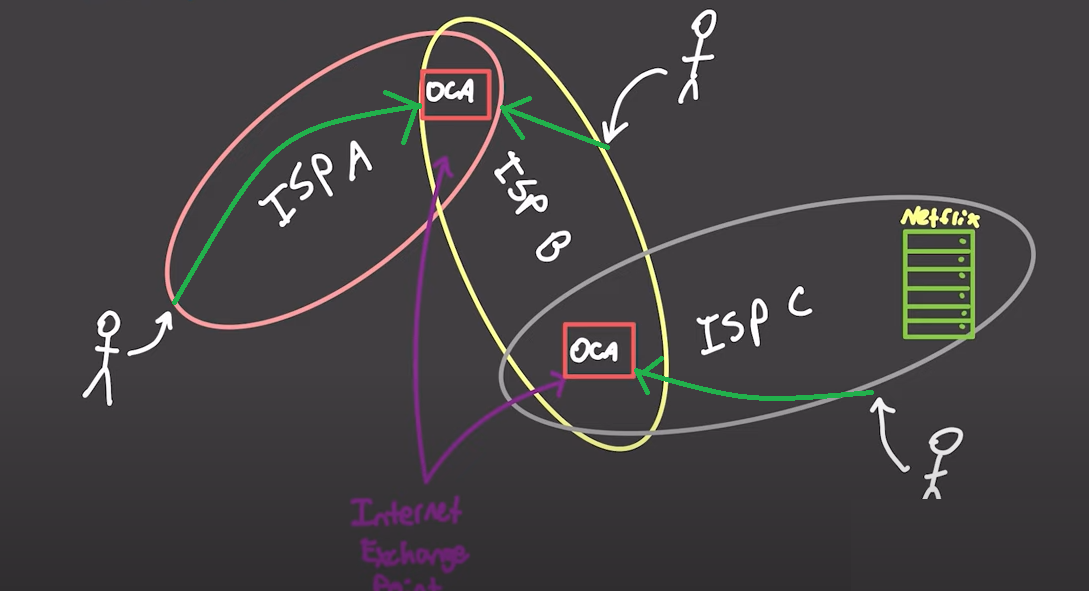 OCA
ISP A
ISP B
Netflix
ISP C
OCA
Internet
Exchange
Point